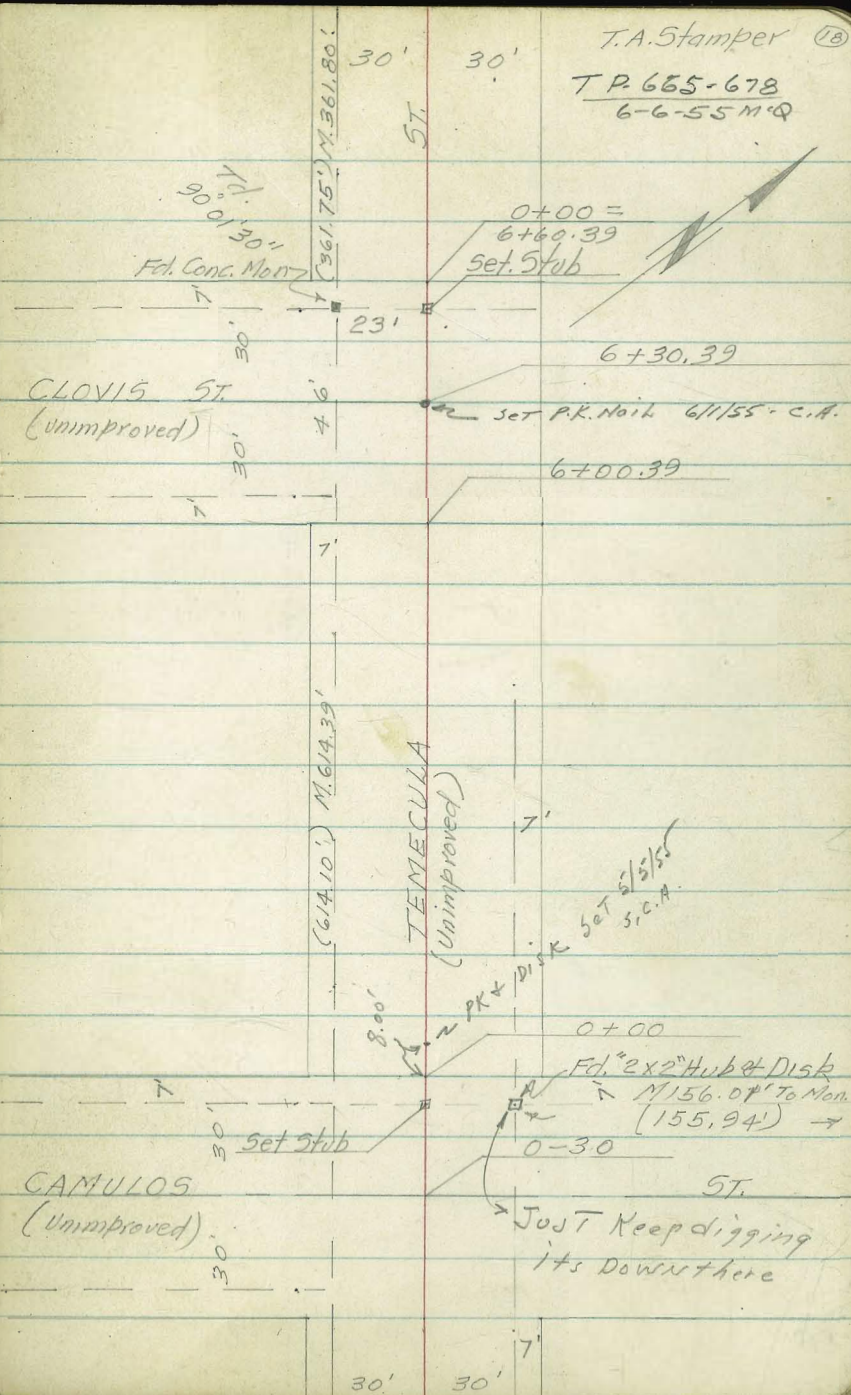 T.A. Stamper 18
T P. 665-678
6-6-55 McQ
30' 30'
(361.75') M.361.80'
ST.
90°01'30"
0+00 =
6+60.39
Set. Stub
Fd. Conc. Mon
7'
23'
30'
6+30.39
CLOVIS ST.
(Unimproved)
46'
SET P.K. Nail 6/1/55 - C.A.
30'
6+00.39
7'
7'
(614.10') M.614.39'
TEMECULA
(Unimproved)
7'
PK & Disk Set 5/5/55
S.C.A.
8.00'
0+00
Fd. "2x2" Hub & Disk
7'
7'
M156.01' To Mon.
(155.94') →
30'
Set Stub
0-30
CAMULOS ST.
(Unimproved)
Just Keep digging
its Down there
30'
7'
30' 30'